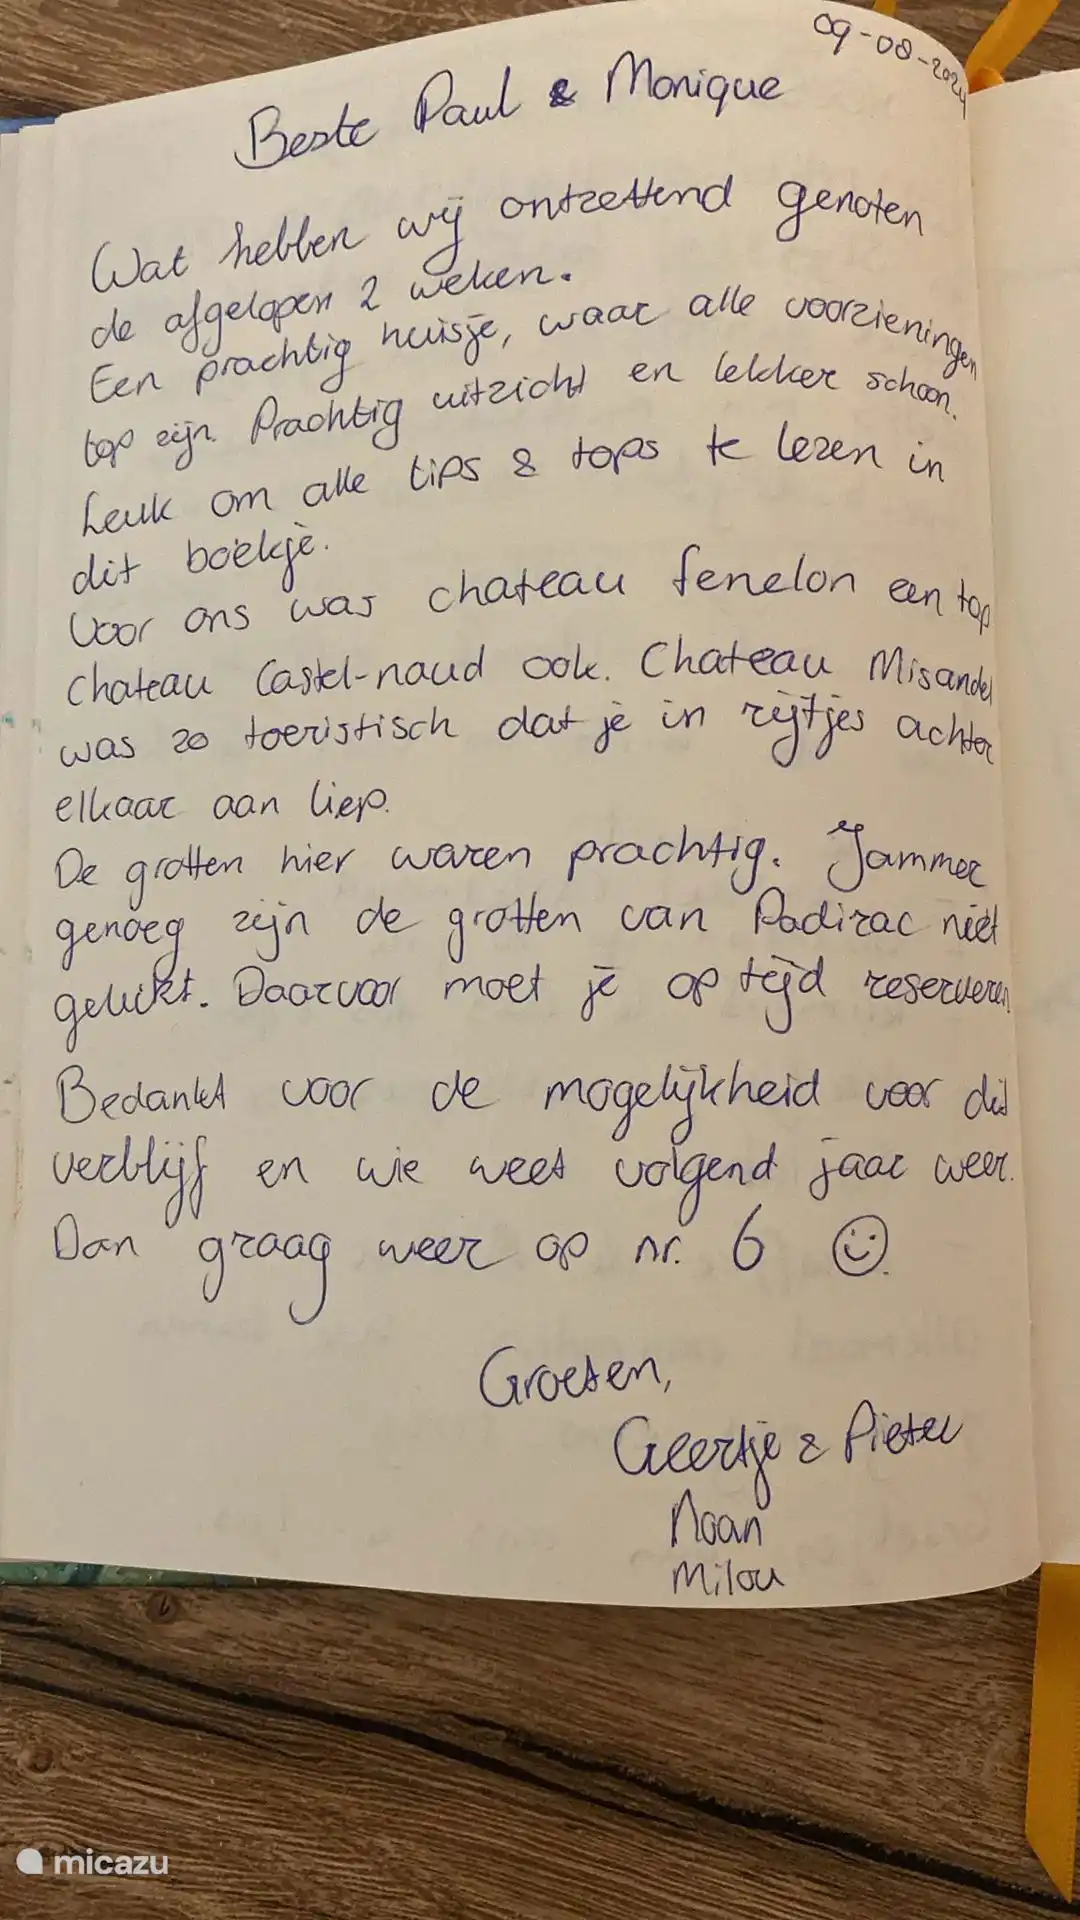 09-08-2024
Beste Paul & Monique
Wat hebben wij ontzettend genoten
de afgelopen 2 weken.
Een prachtig huisje, waar alle voorzieningen
top zijn. Prachtig uitzicht en lekker schoon.
Leuk om alle tips & tops te lezen in
dit boekje.
Voor ons was chateau fenelon een top
chateau Castel-naud ook. Chateau Misandel
was zo toeristisch dat je in rijtjes achter
elkaar aan liep.
De grotten hier waren prachtig. Jammer
genoeg zijn de grotten van Padirac niet
gelukt. Daarvoor moet je op tijd reserveren
Bedankt voor de mogelijkheid voor dit
verblijf en wie weet volgend jaar weer.
Dan graag weer op nr. 6 ☺.
Groeten,
Geertje & Pieter
Noan
Milou
micazu